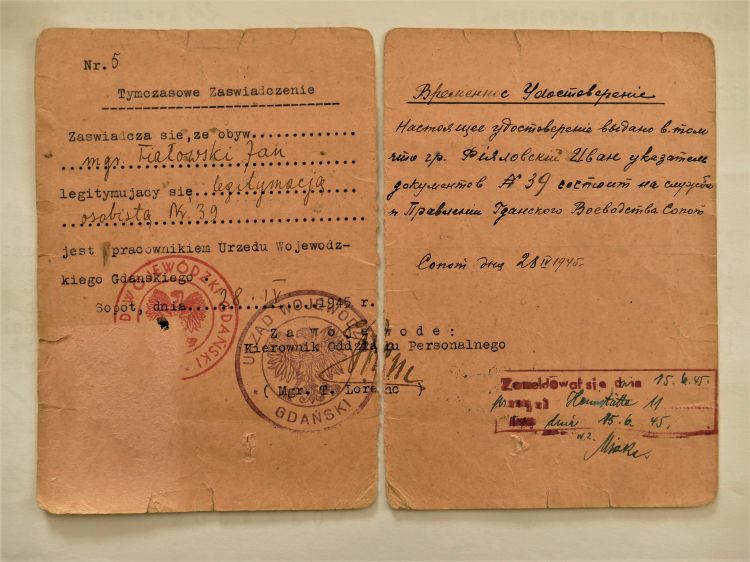 Nr. 5
Tymczasowe Zaswiadczenie
Zaswiadcza sie, ze obyw.
mgr. Fiałowski Jan
legitymujacy się legitymacją
osobistą Nr. 39
jest pracownikiem Urzedu Wojewodz-
kiego Gdańskiego.
Sopot, dnia 28. IV. 1945 r.
Za Wojewode:
Kierownik Oddziału Personalnego
( Mgr. T. Lorenc )
WOJEWÓDZKA GDAŃSK
URZĄD WOJEWÓDZKI
GDAŃSKI
Временное Удостоверение
Настоящее удостоверение выдано в том
что гр. Фіяловский Иван указатель
документов № 39 состоит на службе
п Правлении Гданского Воеводства Сопот
Сопот дня 28 IV 1945.
Zameldował się dnia 15.6.45.
11
dnia 15.6. 45.
w.z.